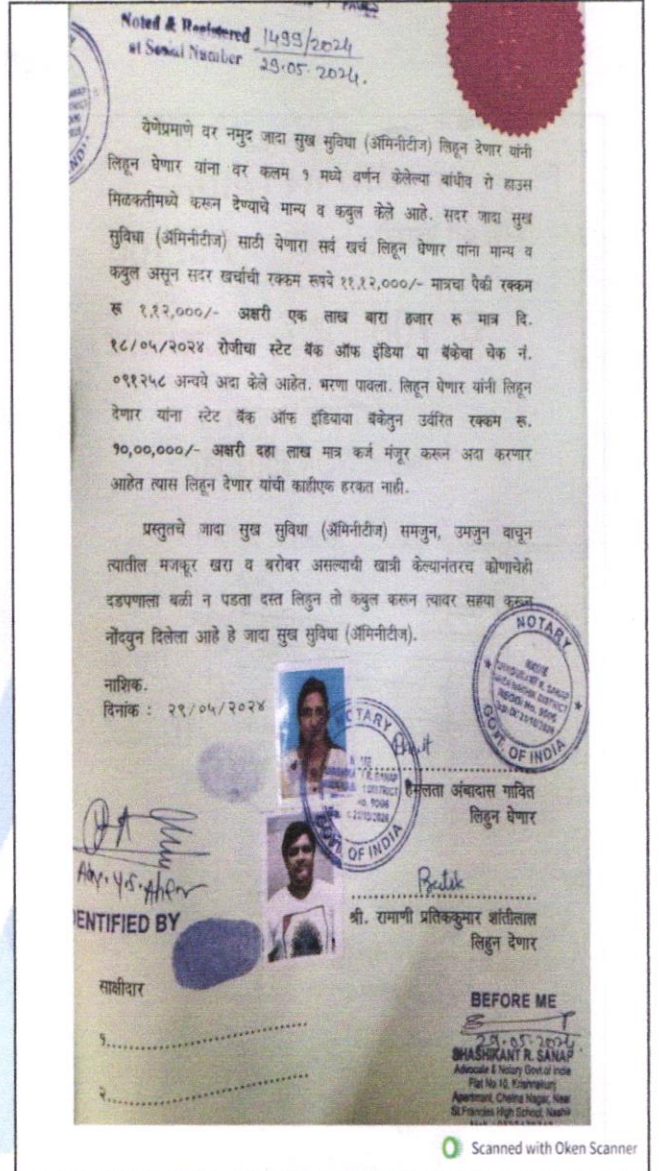 Noted & Registered 1499/2024
at Serial Number 29.05.2024.
येणेप्रमाणे वर नमुद जादा सुख सुविधा (ॲमिनीटीज) लिहून देणार यांनी
लिहून घेणार यांना वर कलम १ मध्ये वर्णन केलेल्या बांधीव रो हाउस
मिळकतीमध्ये करून देण्याचे मान्य व कबुल केले आहे. सदर जादा सुख
सुविधा (ॲमिनीटीज) साठी येणारा सर्व खर्च लिहून घेणार यांना मान्य व
कबुल असून सदर खर्चाची रक्कम रूपये ११,१२,०००/- मात्रचा पैकी रक्कम
रू १,१२,०००/- अक्षरी एक लाख बारा हजार रू मात्र दि.
१८/०५/२०२४ रोजीचा स्टेट बॅक ऑफ इंडिया या बॅकेचा चेक नं.
०९१२५८ अन्वये अदा केले आहेत. भरणा पावला. लिहून घेणार यांनी लिहून
देणार यांना स्टेट बॅक ऑफ इंडियाया बॅकेतुन उर्वरित रक्कम रू.
१०,००,०००/- अक्षरी दहा लाख मात्र कर्ज मंजूर करून अदा करणार
आहेत त्यास लिहून देणार यांची काहीएक हरकत नाही.
प्रस्तुतचे जादा सुख सुविधा (ॲमिनीटीज) समजुन, उमजुन वाचून
त्यातील मजकूर खरा व बरोबर असल्याची खात्री केल्यानंतरच कोणाचेही
दडपणाला बळी न पडता दस्त लिहुन तो कबुल करून त्यावर सहया करून
नोंदवुन दिलेला आहे हे जादा सुख सुविधा (ॲमिनीटीज).
नाशिक.
दिनांक : २९/०५/२०२४
NOTARY
GOVT. OF INDIA
NOTARY
GOVT. OF INDIA
हेमलता अंबादास गावित
लिहुन घेणार
IDENTIFIED BY
श्री. रामाणी प्रतिककुमार शांतीलाल
लिहुन देणार
साक्षीदार
१
२
BEFORE ME
29.05.2024
SHASHIKANT R. SANAP
Advocate & Notary Govt.of India
Flat No 10, Krishnakunj
Apartment, Chetna Nagar, Near
St.Francies High School, Nashik
Scanned with Oken Scanner